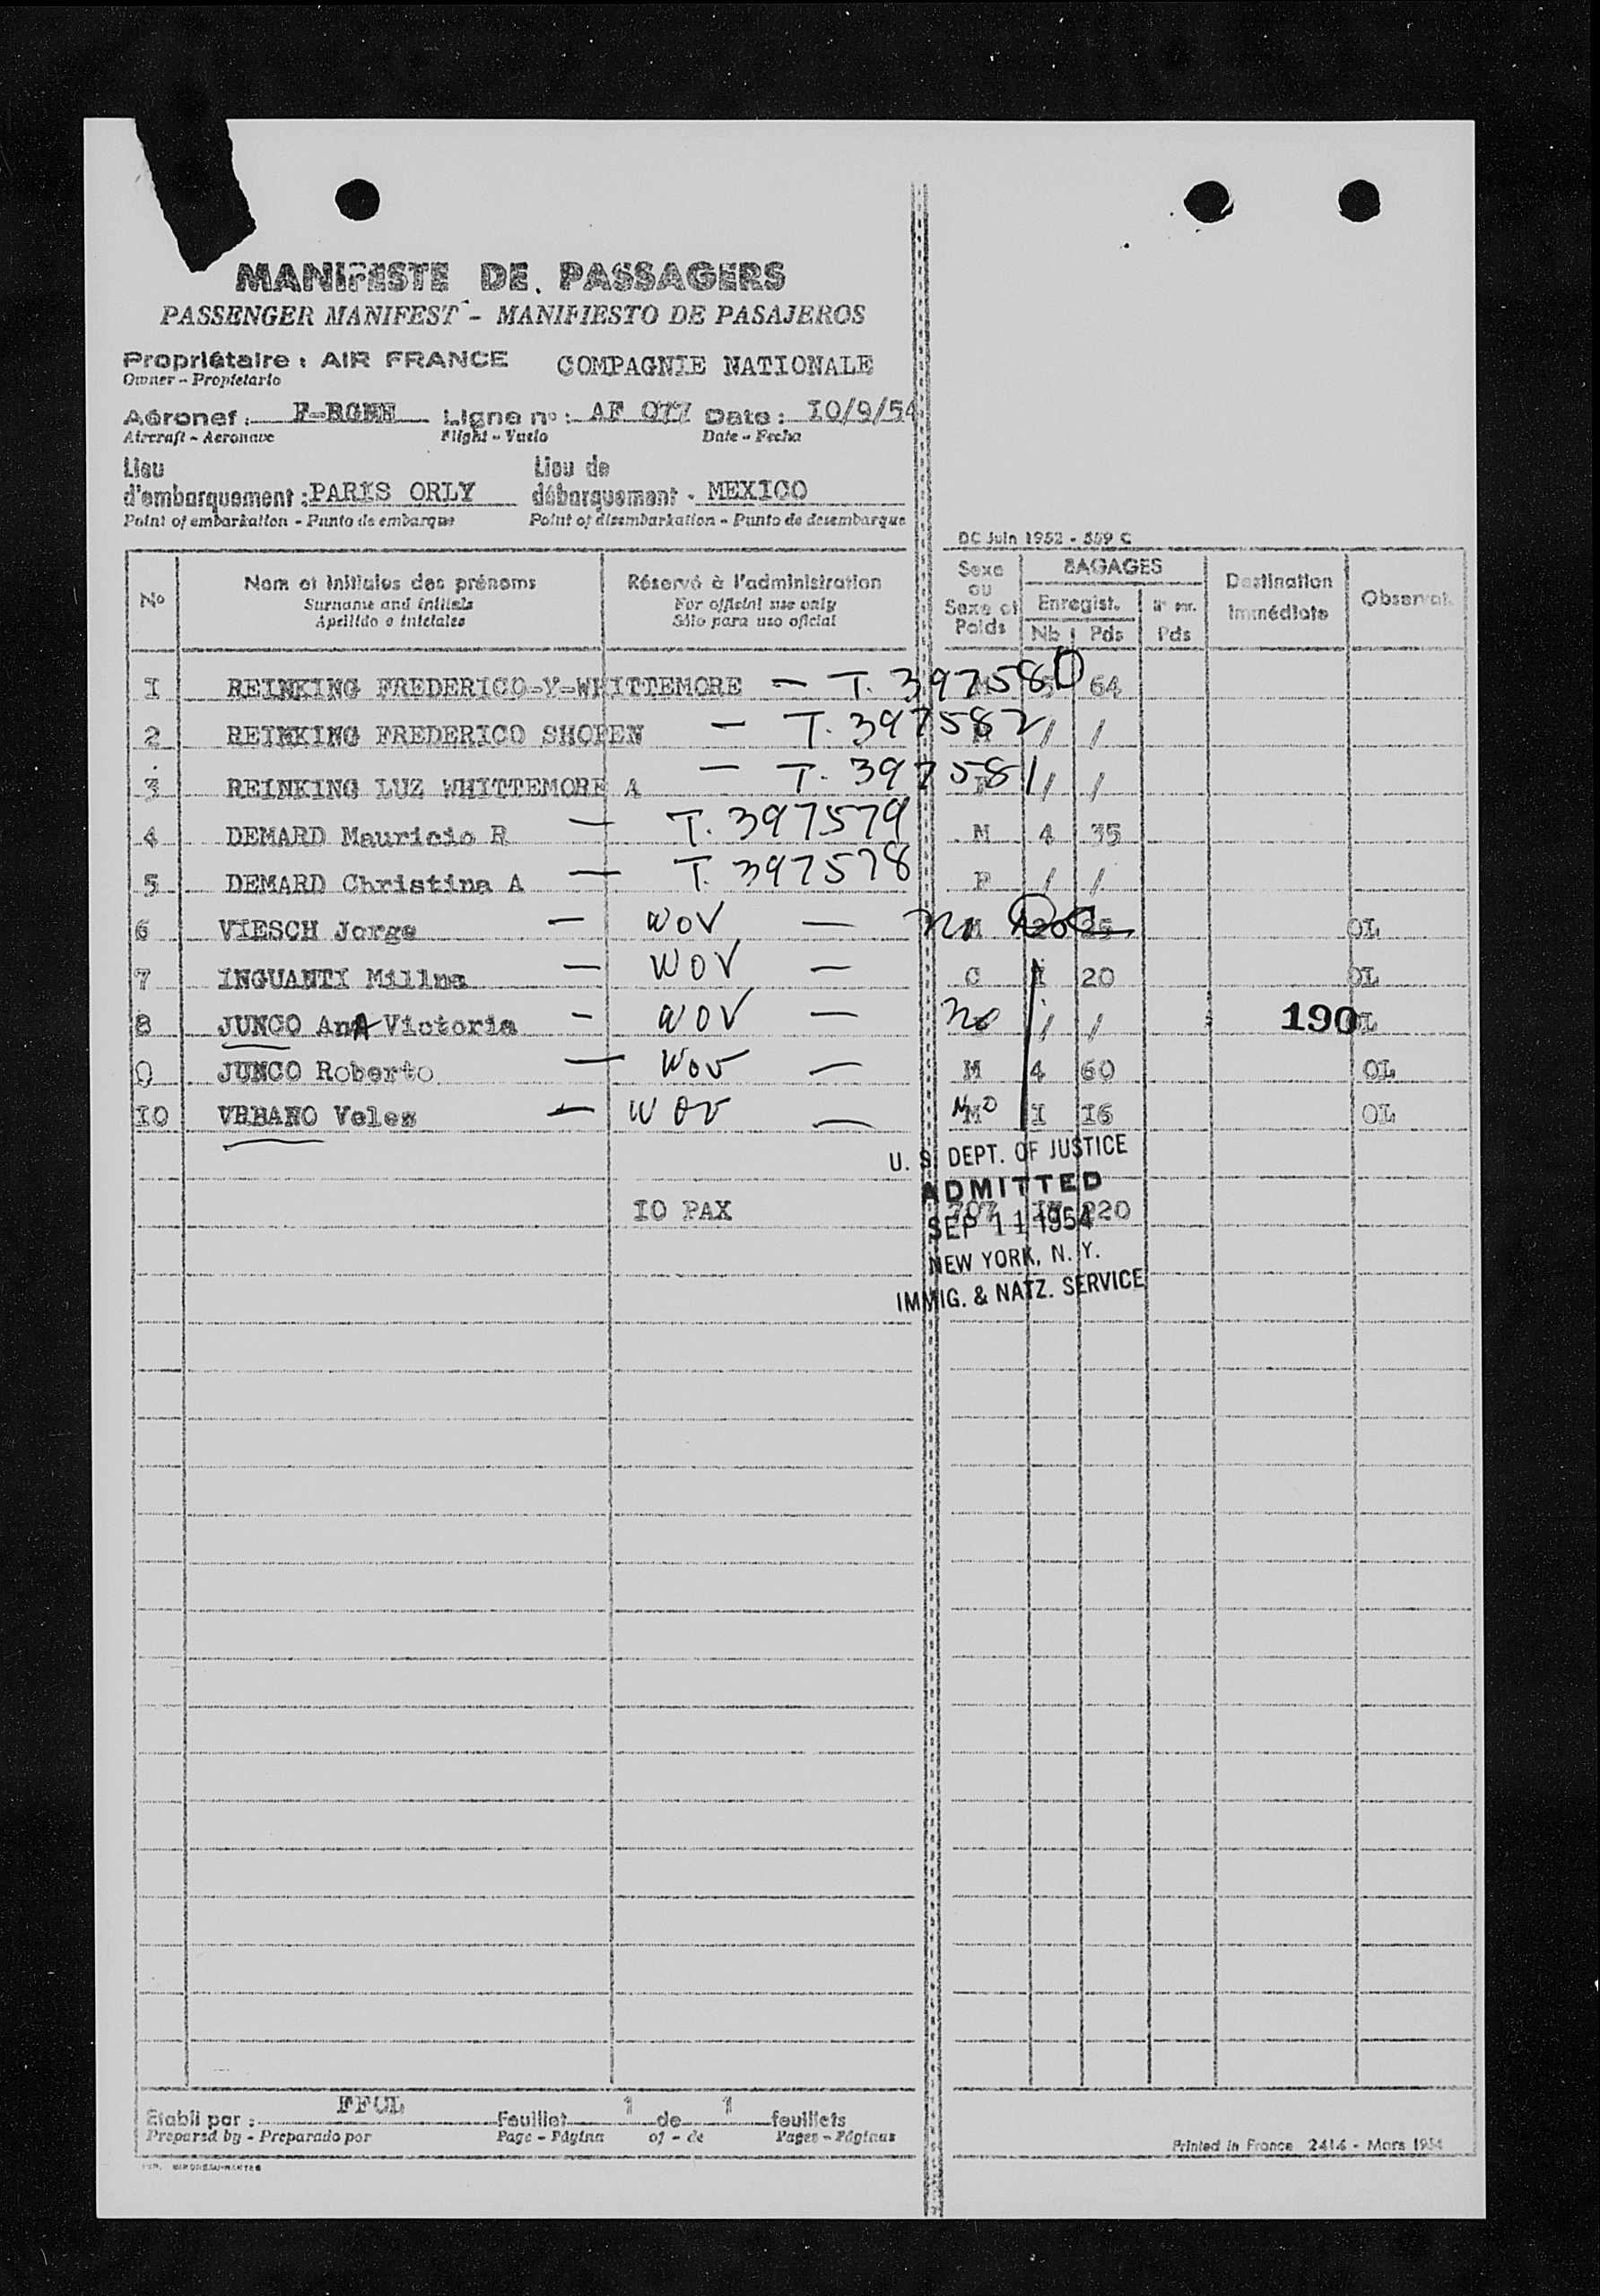 MANIFESTE DE PASSAGERS
PASSENGER MANIFEST - MANIFIESTO DE PASAJEROS
Propriétaire : AIR FRANCE COMPAGNIE NATIONALE
Owner - Propietario
Aéronef : Ligne nº : AF 077 Date : IO/9/54
Aircraft - Aeronave Flight - Vuelo Date - Fecha
Lieu Lieu de
d'embarquement : PARIS ORLY débarquement - MEXICO
Point of embarkation - Punto de embarque Point of disembarkation - Punto de desembarque
DC Juin 1952 - 589 C
Nº Nom et initiales des prénoms Réservé à l'administration Sexe ou Sexe et Poids BAGAGES Destination immédiate Observat.
Surname and initials For official use only Enregist.
Apellido e iniciales Sólo para uso oficial Nb Pds Pds
I REINKING FREDERICO-Y-WHITTEMORE - T. 397580 64
2 REINKING FREDERICO SHOPEN - T. 397582 M / /
3 REINKING LUZ WHITTEMORE A - T. 397581 / /
4 DEMARD Mauricio R - T. 397579 M 4 35
5 DEMARD Christina A - T. 397578 F / /
6 VIESCH Jorge - WOV - no M 25 OL
7 INGUANTI Millna - WOV - C I 20 OL
8 JUNCO AnA Victoria - WOV - no / / 190 OL
9 JUNCO Roberto - WOV - M 4 60 OL
IO VRBANO Veles - WOV - no M I I6 OL
U. S. DEPT. OF JUSTICE
ADMITTED
IO PAX 707 220
SEP 11 1954
NEW YORK, N. Y.
IMMIG. & NATZ. SERVICE
Etabli par : FFOL Feuillet 1 de 1 feuillets
Prepared by - Preparado por Page - Página of - de Pages - Páginas
Printed in France 2414 - Mars 1954